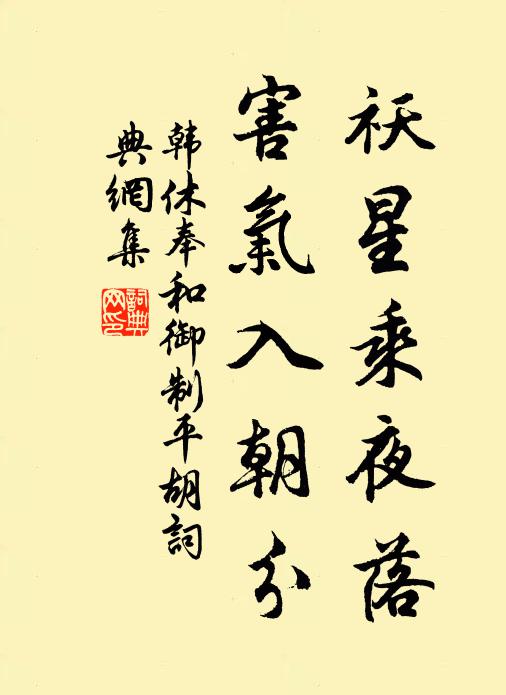 祅星乘夜落
害氣入朝分
韩休奉和御制平胡詞
典網集
詞典网印